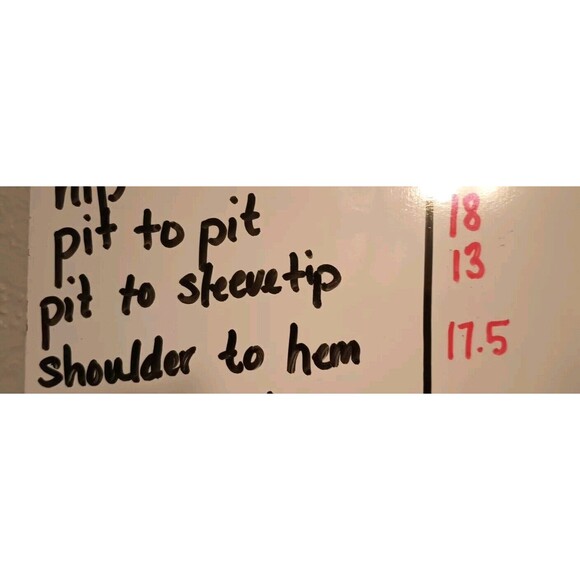 hip
pit to pit 18
pit to sleeve tip 13
shoulder to hem 17.5